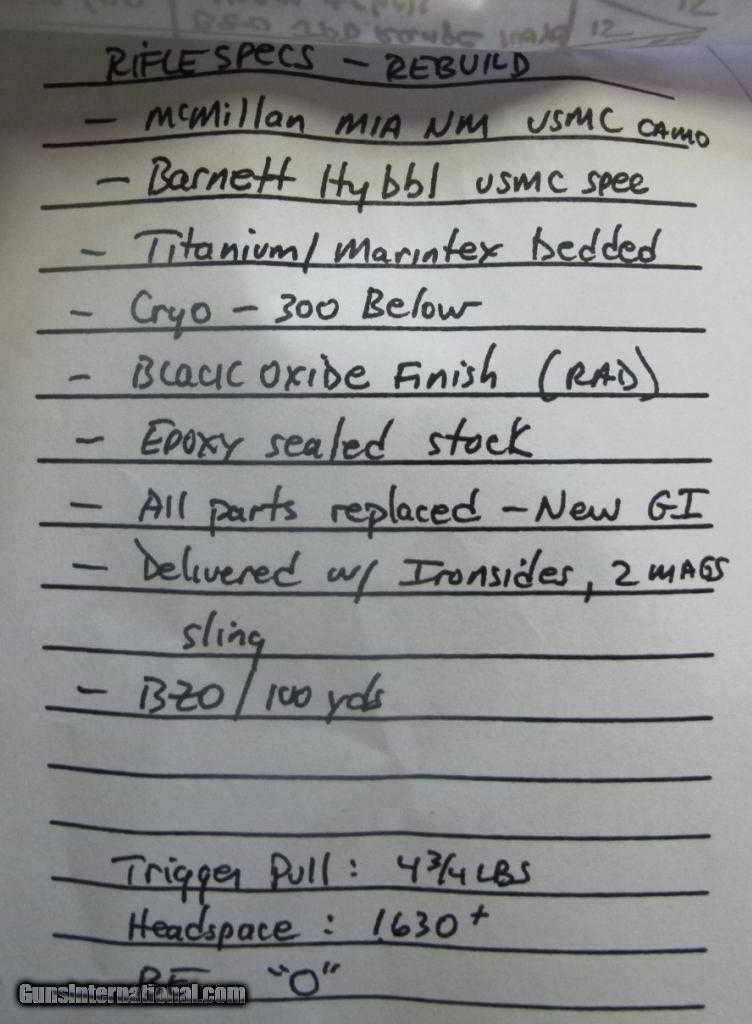 12
12
RIFLE SPECS - REBUILD
- McMillan M1A NM USMC CAMO
- Barnett Hy bbl USMC spec
- Titanium/Marintex bedded
- Cryo - 300 Below
- Black Oxide Finish (RAD)
- Epoxy sealed stock
- All parts replaced - New GI
- Delivered w/ Ironsides, 2 MAGS
sling
- BZO/100 yds
Trigger Pull: 4 3/4 LBS
Headspace: 1630+
"O"
GunsInternational.com